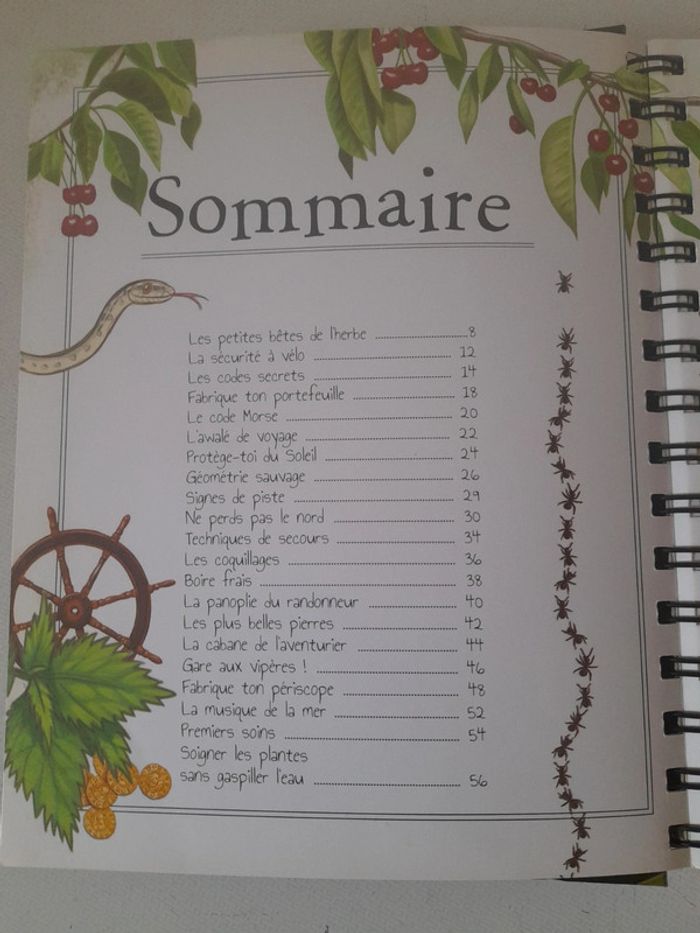 Sommaire
Les petites bêtes de l'herbe ........................ 8
La sécurité à vélo ........................ 12
Les codes secrets ........................ 14
Fabrique ton portefeuille ........................ 18
Le code Morse ........................ 20
L'awalé de voyage ........................ 22
Protège-toi du Soleil ........................ 24
Géométrie sauvage ........................ 26
Signes de piste ........................ 29
Ne perds pas le nord ........................ 30
Techniques de secours ........................ 34
Les coquillages ........................ 36
Boire frais ........................ 38
La panoplie du randonneur ........................ 40
Les plus belles pierres ........................ 42
La cabane de l'aventurier ........................ 44
Gare aux vipères ! ........................ 46
Fabrique ton périscope ........................ 48
La musique de la mer ........................ 52
Premiers soins ........................ 54
Soigner les plantes
sans gaspiller l'eau ........................ 56